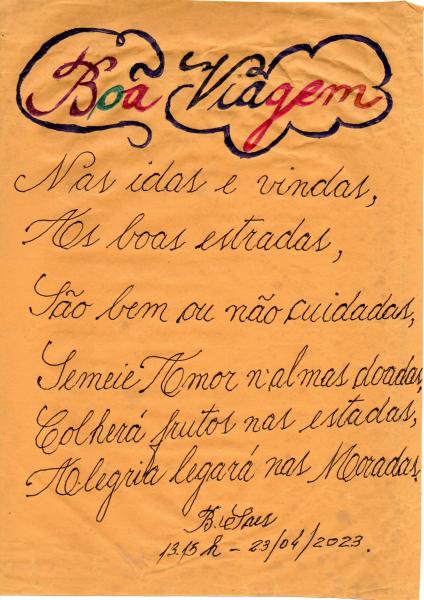 Boa Viagem
Nas idas e vindas,
As boas estradas,
São bem ou não cuidadas,
Semeie Amor n'almas doadas,
Colherá frutos nas estadas,
Alegria legará nas Moradas.
B. Saes
13.15 h - 23/04/2023.